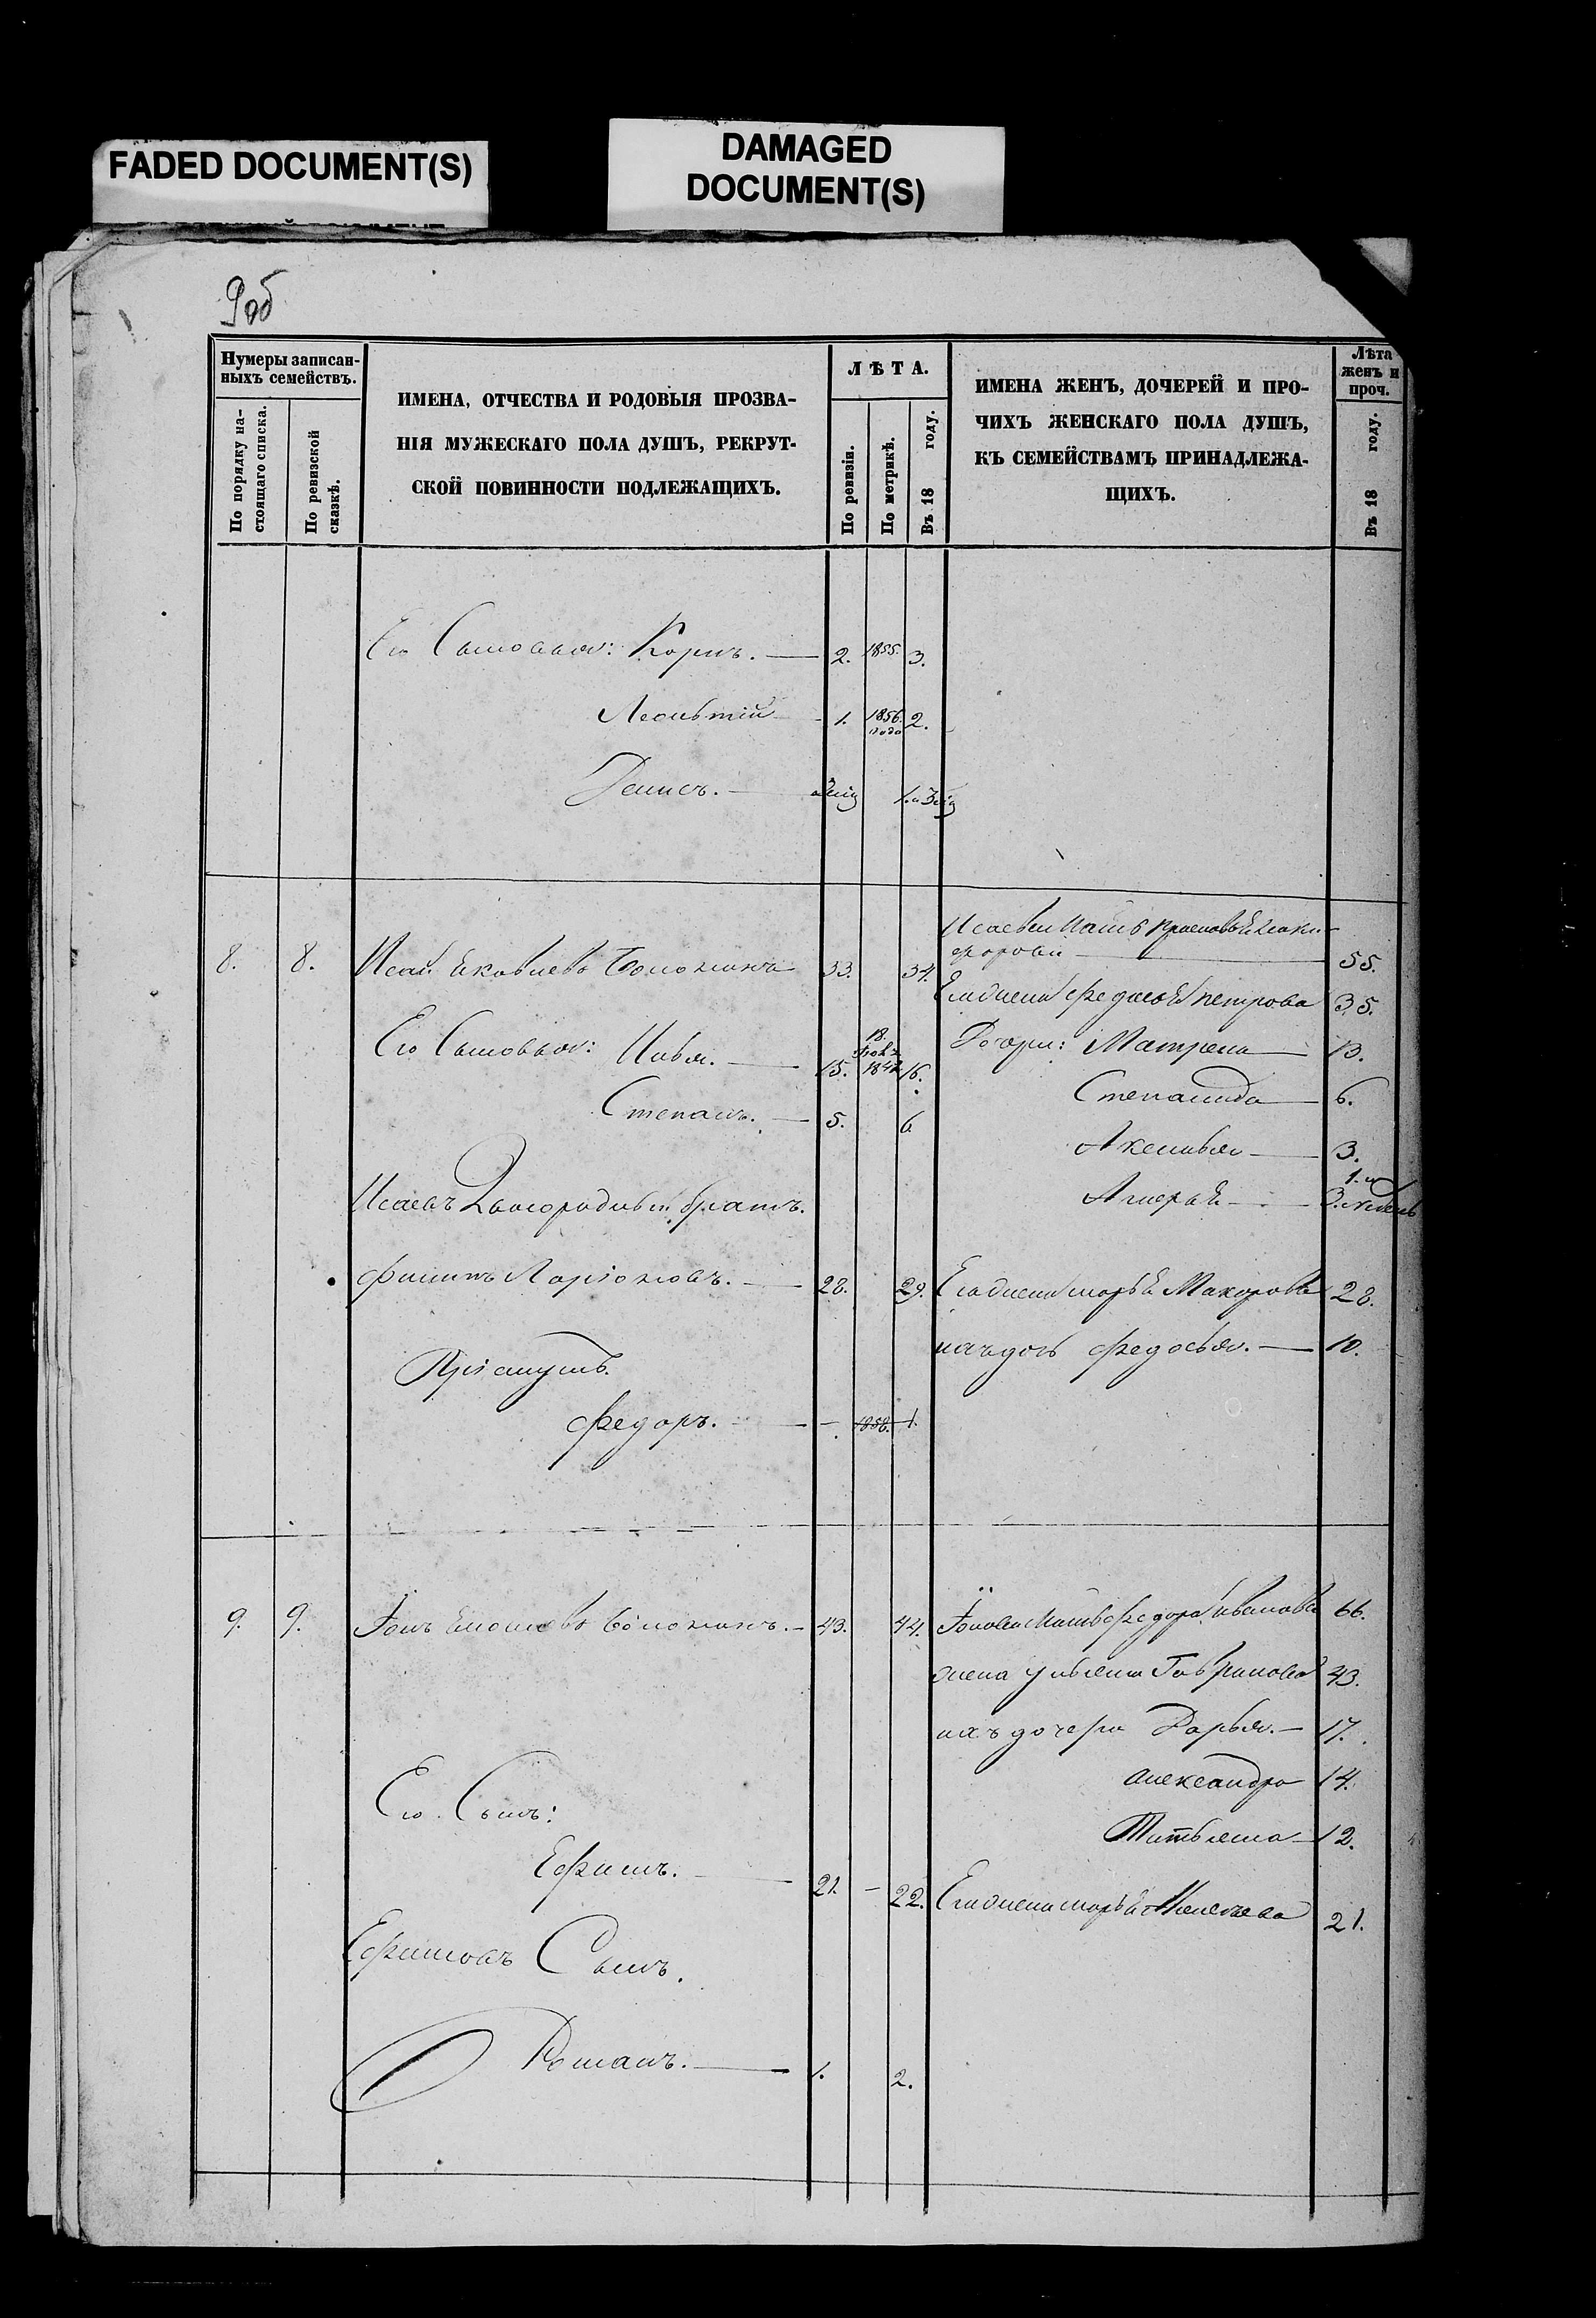 FADED DOCUMENT(S)
DAMAGED
DOCUMENT(S)
9об
Нумеры записан-
ныхъ семействъ.
По порядку на-
стоящаго списка.
По ревизской
сказкѣ.
ИМЕНА, ОТЧЕСТВА И РОДОВЫЯ ПРОЗВА-
НІЯ МУЖЕСКАГО ПОЛА ДУШЪ, РЕКРУТ-
СКОЙ ПОВИННОСТИ ПОДЛЕЖАЩИХЪ.
ЛѢТА.
По ревизіи.
По метрикѣ.
Въ 18 году.
ИМЕНА ЖЕНЪ, ДОЧЕРЕЙ И ПРО-
ЧИХЪ ЖЕНСКАГО ПОЛА ДУШЪ,
КЪ СЕМЕЙСТВАМЪ ПРИНАДЛЕЖА-
ЩИХЪ.
Лѣта
женъ и
проч.
Въ 18 году.
Его Сыновья: Корнъ. 2. 1855. 3.
Леонътій 1. 1856. года 2.
Денисъ. 1. и 3
Исаева Мать
55.
8. 8. Исай Яковлевъ 33. 34.
Его жена Федосья Петрова 35.
Его Сыновья: 15. 18. 1842 16.
Дочери: Матрена 13.
Степанъ. 5. 6
Степанида 6.
Аксинья 3.
Исаевъ Двоюродный братъ.
1. и
3. недель
Филипъ Ларіоновъ. 28. 29. Его жена Марья Макарова 28.
ихъ дочь Федосья. 10.
Федоръ. 1858. 1.
9. 9. 43. 44. Іонова Мать Федора Иванова 66.
жена Ульяна Гаврилова 43.
ихъ дочери Дарья. 17.
Александра 14.
Его Сынъ:
Татьяна 12.
Ефимъ. 21. 22. Его жена Марья 21.
Ефимовъ Сынъ.
Романъ. 1. 2.